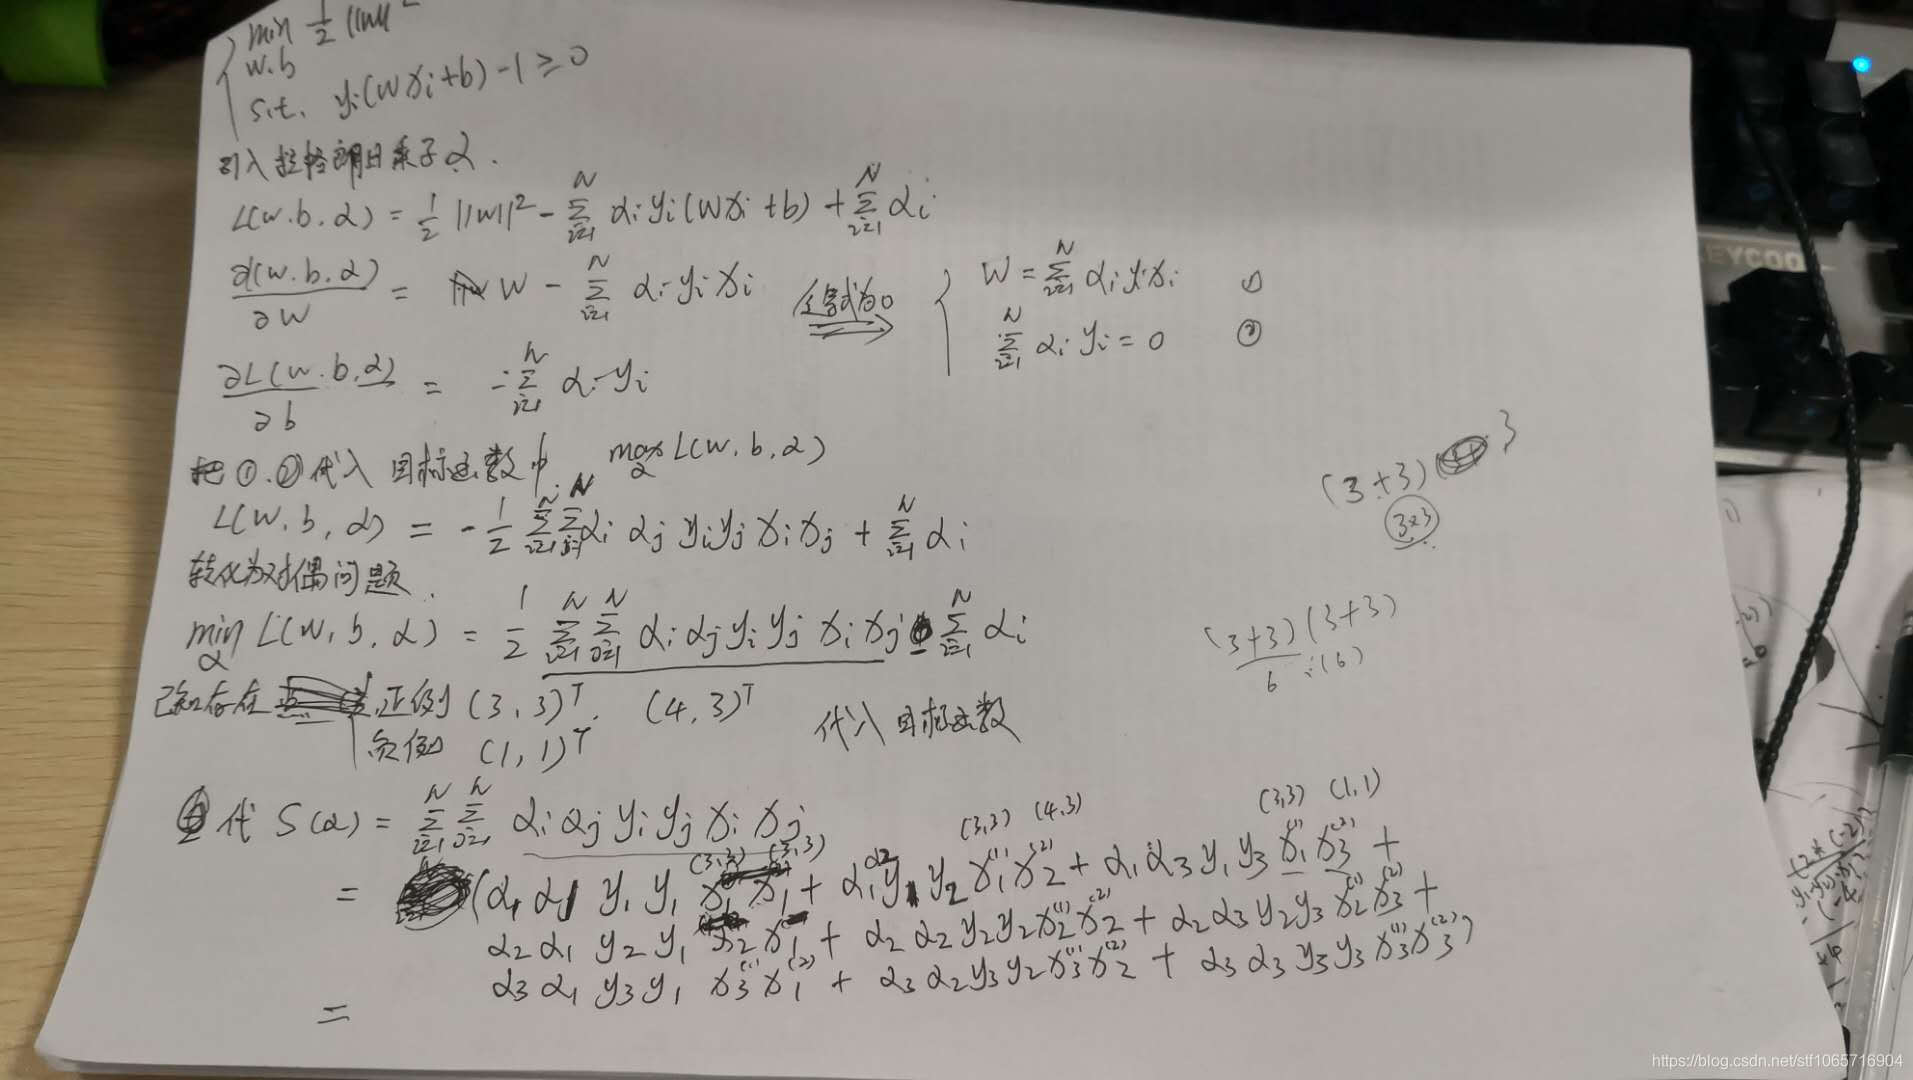 min 1/2 ||w||²
w.b
s.t. yi(wxi+b)-1≥0
引入拉格朗日乘子α.
L(w.b.α) = 1/2 ||w||² - Σ(i=1..N) αi yi(wxi+b) + Σ(i=1..N) αi
∂(w.b.α)/∂w = w - Σ(i=1..N) αi yi xi 令导式为0 ⟹ { w = Σ(i=1..N) αi yi xi ①
Σ(i=1..N) αi yi = 0 ②
∂L(w.b.α)/∂b = -Σ(i=1..N) αi yi
把①.②代入目标函数中. max α L(w.b.α)
L(w.b.α) = -1/2 Σ(i=1..N) Σ(j=1..N) αi αj yi yj xi xj + Σ(i=1..N) αi
转化为对偶问题.
min α L(w.b.α) = 1/2 Σ(i=1..N) Σ(j=1..N) αi αj yi yj xi xj - Σ(i=1..N) αi
已知存在 正例 (3,3)ᵀ. (4,3)ᵀ 代入目标函数
负例 (1,1)ᵀ
代 S(α) = Σ(i=1..N) Σ(j=1..N) αi αj yi yj xi xj
(3,3) (3,3) (3,3) (4,3) (3,3) (1,1)
= (α1 α1 y1 y1 x1 x1 + α1 α2 y1 y2 x1⁽¹⁾ x2⁽²⁾ + α1 α3 y1 y3 x1⁽¹⁾ x3⁽²⁾ +
α2 α1 y2 y1 x2 x1 + α2 α2 y2 y2 x2⁽¹⁾ x2⁽²⁾ + α2 α3 y2 y3 x2⁽¹⁾ x3⁽²⁾ +
α3 α1 y3 y1 x3⁽¹⁾ x1⁽²⁾ + α3 α2 y3 y2 x3⁽¹⁾ x2⁽²⁾ + α3 α3 y3 y3 x3⁽¹⁾ x3⁽²⁾)
=
(3+3)
3×3
(3+3)(3+3)
6 (6)
KEYCOO
https://blog.csdn.net/stf1065716904